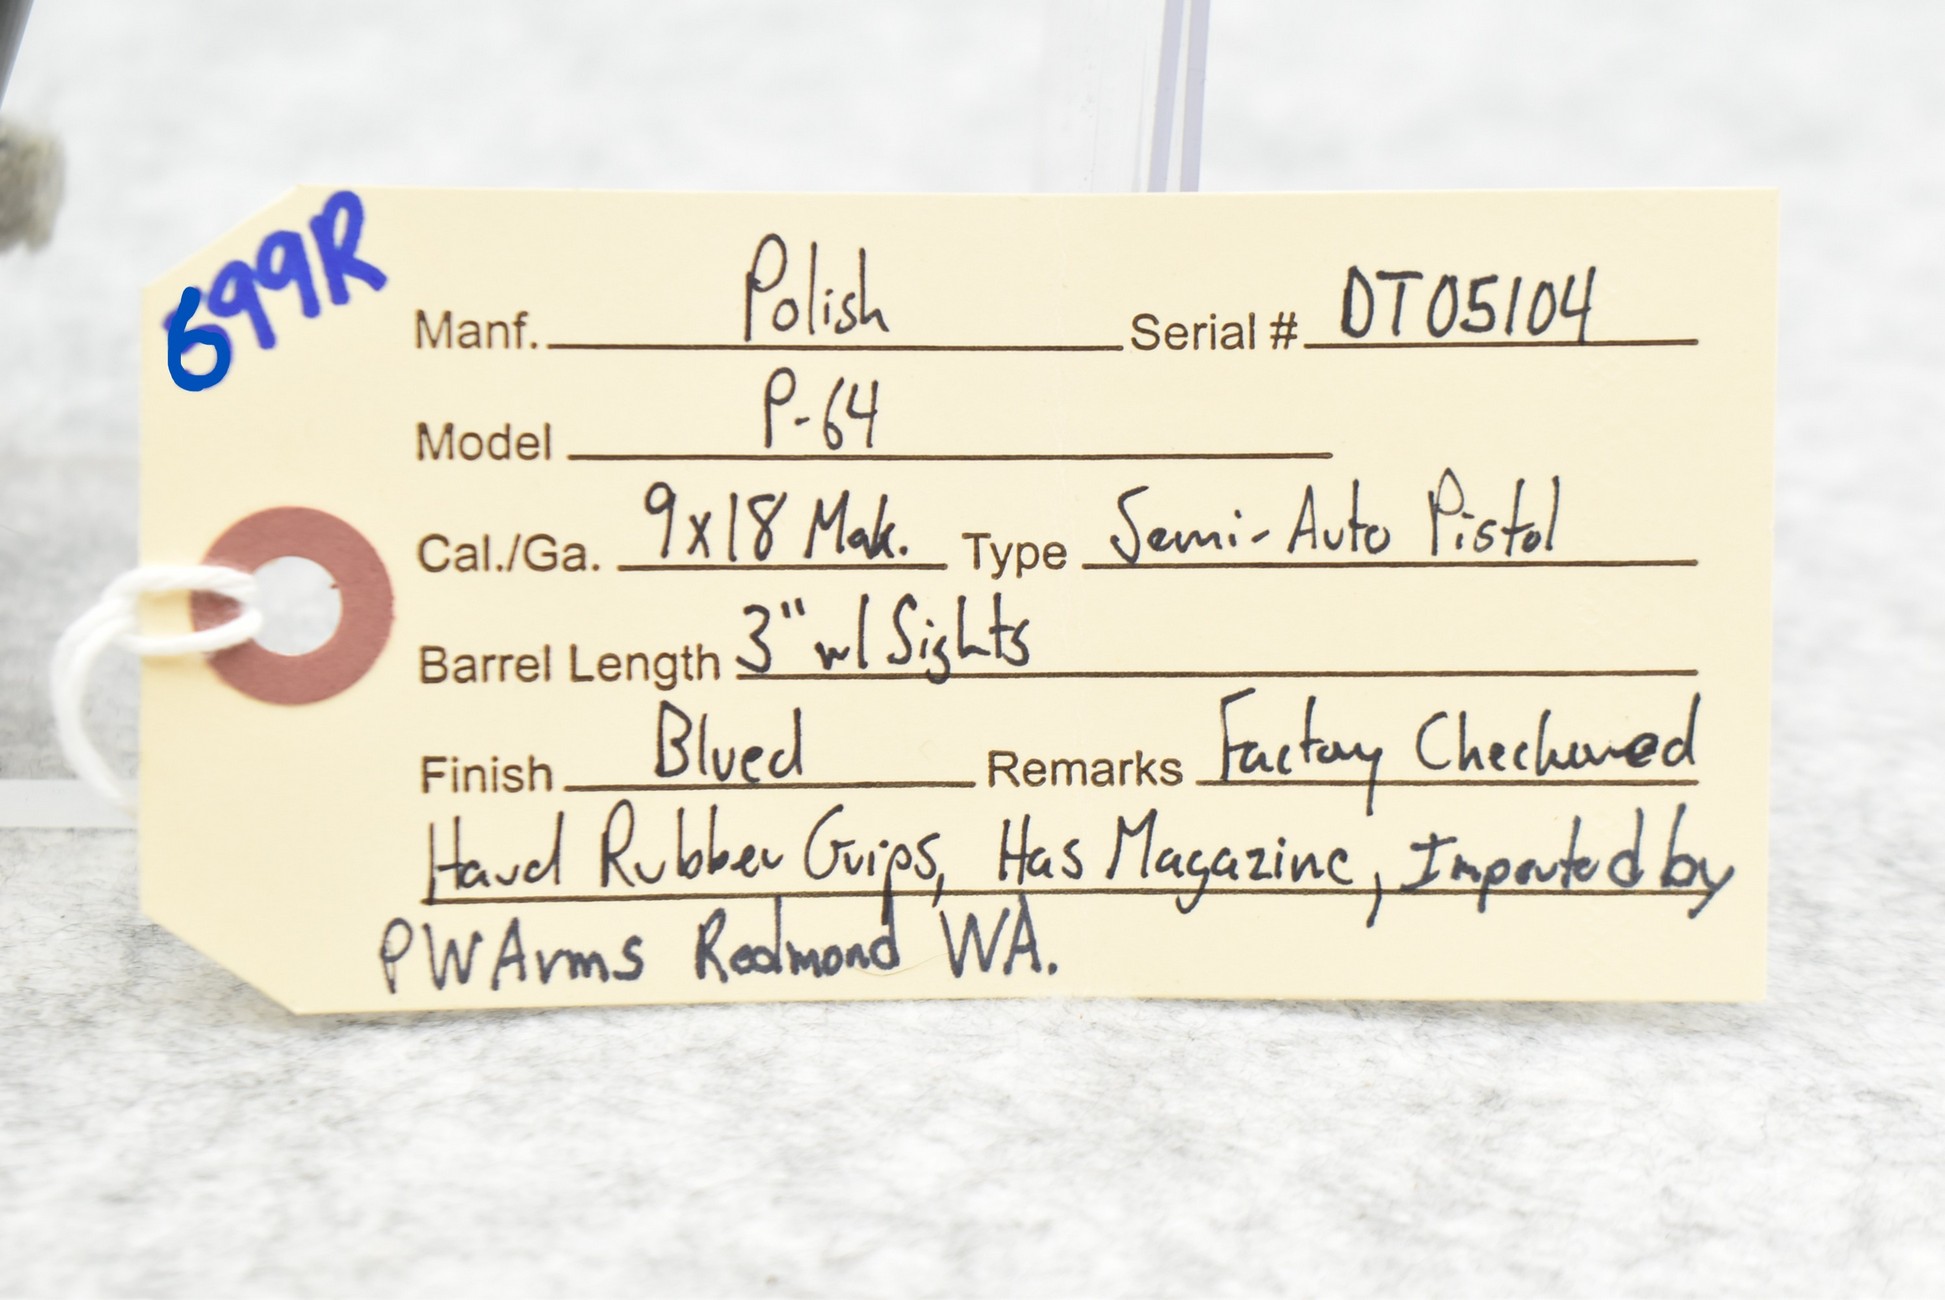 699R
Manf. Polish Serial # DT05104
Model P-64
Cal./Ga. 9x18 Mak. Type Semi-Auto Pistol
Barrel Length 3" w/ Sights
Finish Blued Remarks Factory Checkered
Hard Rubber Grips, Has Magazine, Imported by
PW Arms Redmond WA.